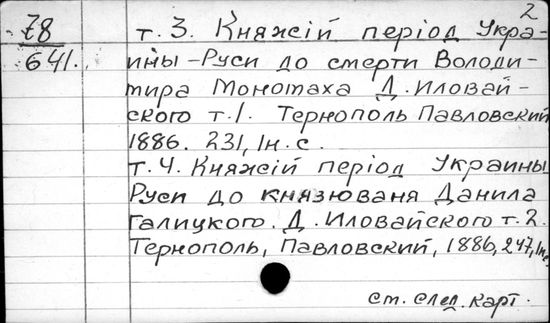 2
78
641.
т. 3. Княжсій період Укра-
ины-Руси до смерти Володи-
мира Мономаха Д. Иловай-
ского т. 1. Тернополь Павловский
1886. 231, 1н. с.
т. 4. Княжсій період Украины
Руси до князюваня Данила
Галицкого. Д. Иловайского т. 2.
Тернополь, Павловский, 1886, 247, 1н.с.
см. след. карт.